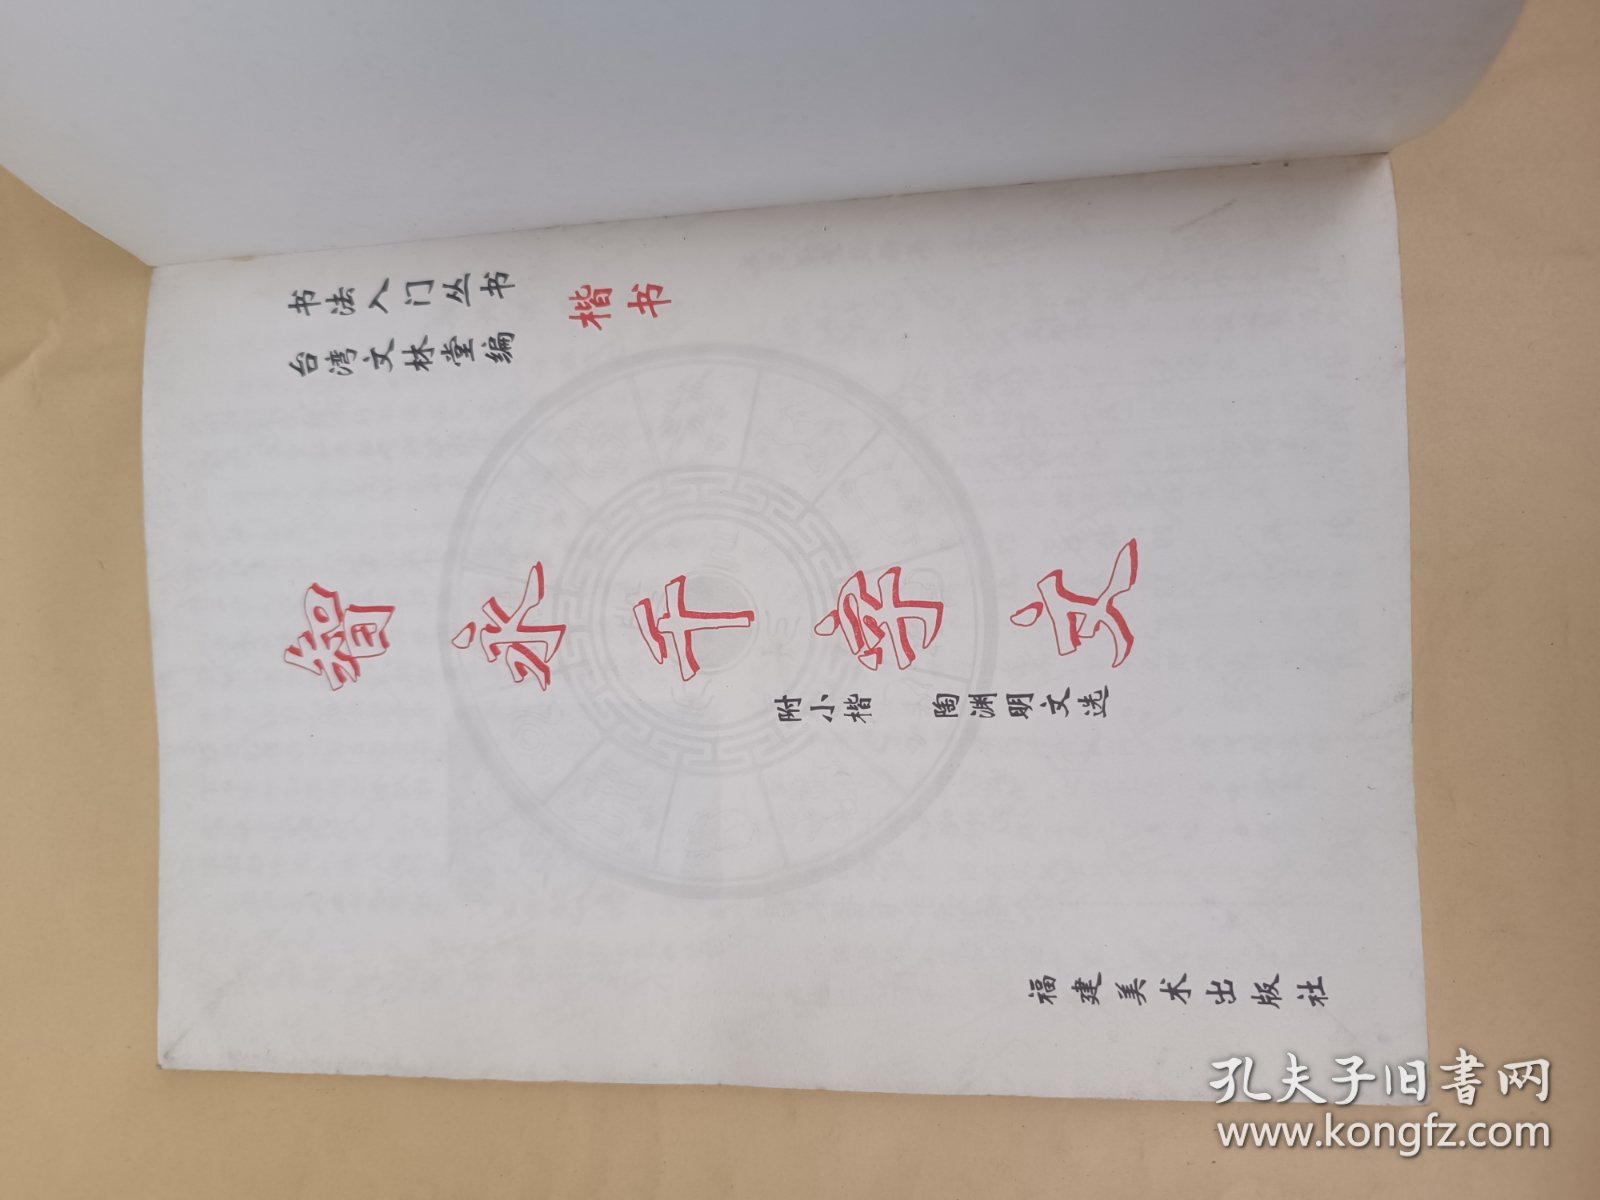 书法入门丛书
台湾文林堂编
楷书
智永千字文
附小楷 陶渊明文选
福建美术出版社
孔夫子旧书网
www.kongfz.com